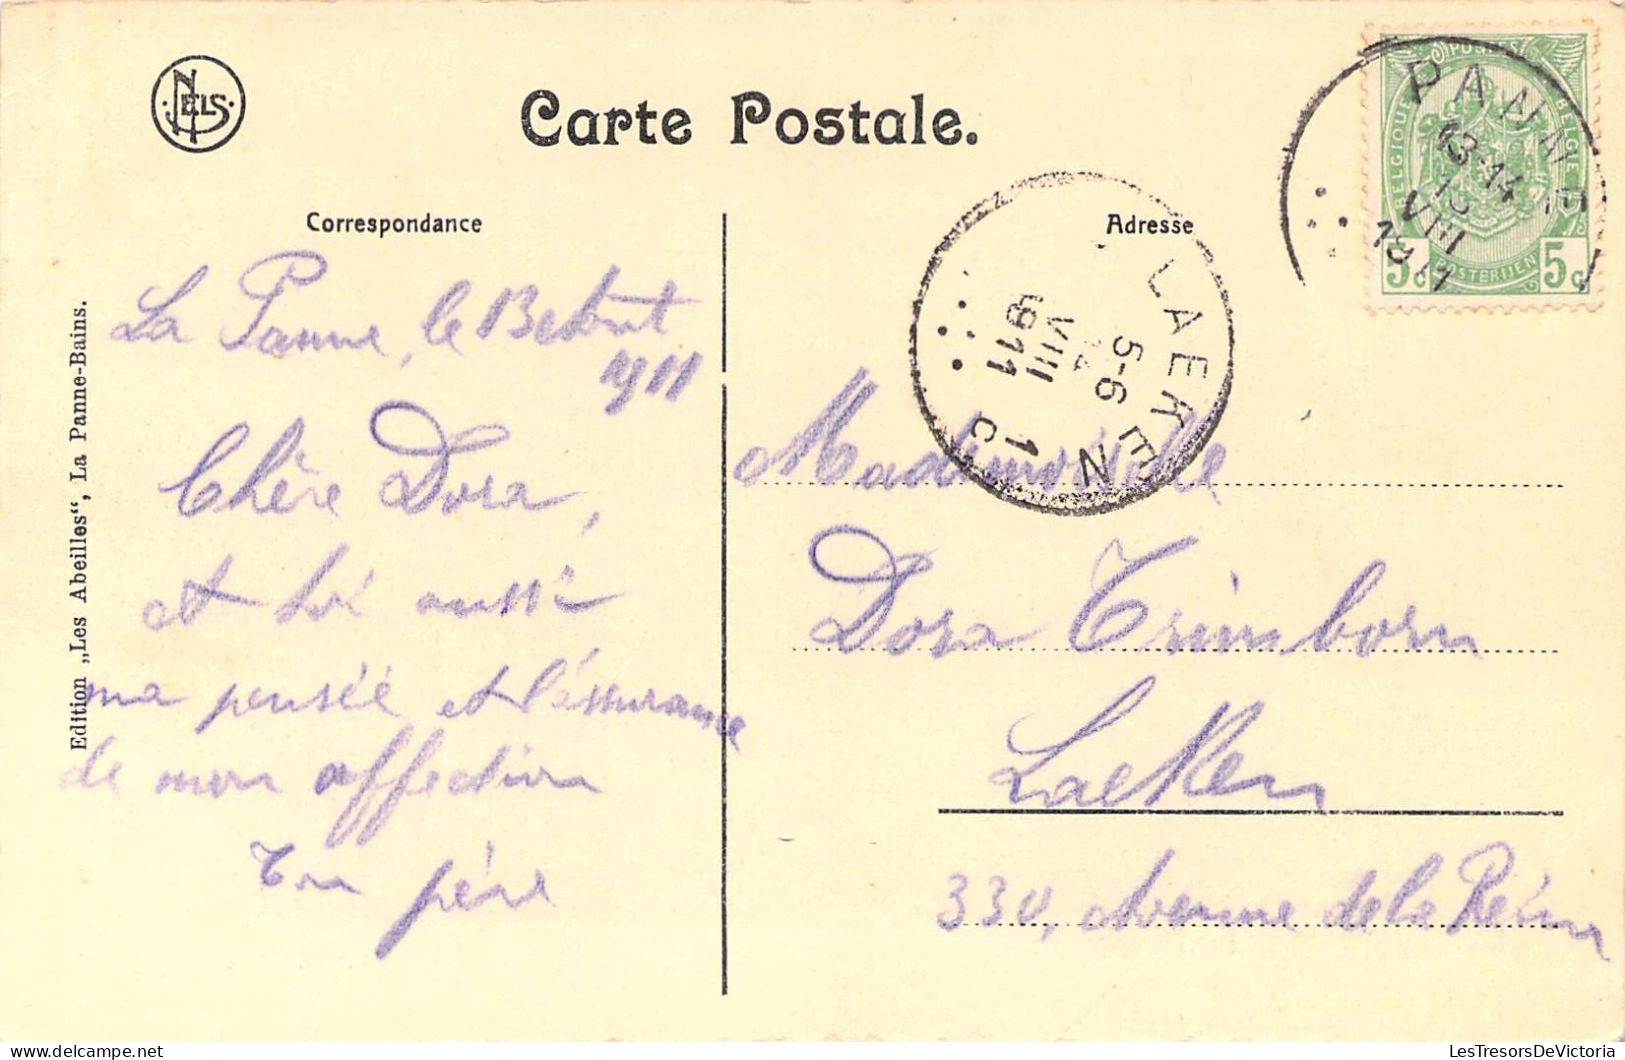 NELS
Carte Postale.
Correspondance
Adresse
PANNE
13-14
VIII
1911
BELGIQUE
POSTES
BELGIE
POSTERIJEN
5c 5c
LAEKEN
5-6
VIII
1911
1 C
La Panne, le
1911
Chère Dora,
et toi aussi
ma pensée et l'assurance
de mon affection
Ton père
Mademoiselle
Dora Trimborn
Laeken
330, Avenue de la Reine
Edition „Les Abeilles“, La Panne-Bains.
LesTresorsDeVictoria